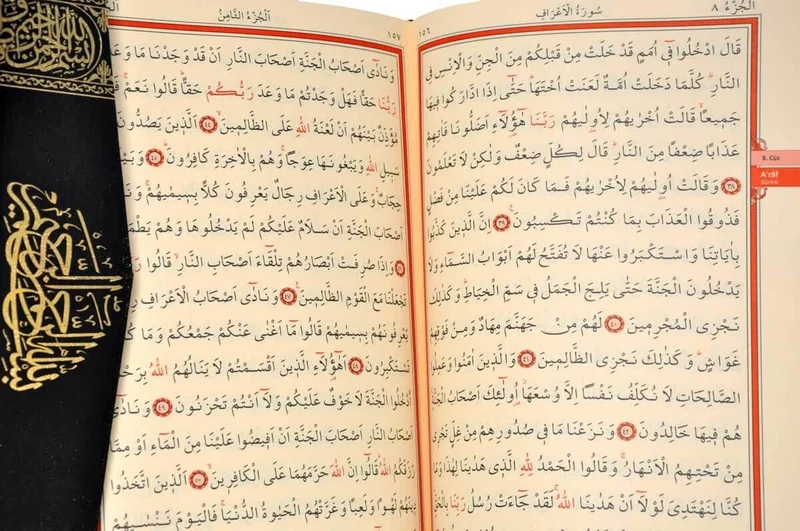 الجزء ٨
سورة الأعراف
١٥٦
قَالَ ادْخُلُوا فِى أُمَمٍ قَدْ خَلَتْ مِنْ قَبْلِكُمْ مِنَ الْجِنِّ وَالْاِنْسِ فِى
النَّارِ كُلَّمَا دَخَلَتْ اُمَّةٌ لَعَنَتْ اُخْتَهَا حَتّٰى اِذَا ادَّارَكُوا فِيهَا
جَمِيعًا قَالَتْ اُخْرٰيهُمْ لِاُولٰيهُمْ رَبَّنَا هٰٓؤُلَٓاءِ اَضَلُّونَا فَاٰتِهِمْ
عَذَابًا ضِعْفًا مِنَ النَّارِ قَالَ لِكُلٍّ ضِعْفٌ وَلٰكِنْ لَا تَعْلَمُونَ
٣٨ وَقَالَتْ اُولٰيهُمْ لِاُخْرٰيهُمْ فَمَا كَانَ لَكُمْ عَلَيْنَا مِنْ فَضْلٍ
فَذُوقُوا الْعَذَابَ بِمَا كُنْتُمْ تَكْسِبُونَ ٣٩ اِنَّ الَّذِينَ كَذَّبُوا
بِاٰيَاتِنَا وَاسْتَكْبَرُوا عَنْهَا لَا تُفَتَّحُ لَهُمْ اَبْوَابُ السَّمَٓاءِ وَلَا
يَدْخُلُونَ الْجَنَّةَ حَتّٰى يَلِجَ الْجَمَلُ فِى سَمِّ الْخِيَاطِ وَكَذٰلِكَ
نَجْزِى الْمُجْرِمِينَ ٤٠ لَهُمْ مِنْ جَهَنَّمَ مِهَادٌ وَمِنْ فَوْقِهِمْ
غَوَاشٍ وَكَذٰلِكَ نَجْزِى الظَّالِمِينَ ٤١ وَالَّذِينَ اٰمَنُوا وَعَمِلُوا
الصَّالِحَاتِ لَا نُكَلِّفُ نَفْسًا اِلَّا وُسْعَهَا اُولٰٓئِكَ اَصْحَابُ الْجَنَّةِ
هُمْ فِيهَا خَالِدُونَ ٤٢ وَنَزَعْنَا مَا فِى صُدُورِهِمْ مِنْ غِلٍّ تَجْرِى
مِنْ تَحْتِهِمُ الْاَنْهَارُ وَقَالُوا الْحَمْدُ لِلّٰهِ الَّذِى هَدٰينَا لِهٰذَا وَمَا
كُنَّا لِنَهْتَدِىَ لَوْلَٓا اَنْ هَدٰينَا اللّٰهُ لَقَدْ جَٓاءَتْ رُسُلُ رَبِّنَا بِالْحَقِّ
8. Cüz
A'râf
Sûresi
الجزء الثامن
١٥٧
وَنَادٰٓى اَصْحَابُ الْجَنَّةِ اَصْحَابَ النَّارِ اَنْ قَدْ وَجَدْنَا مَا وَعَدَنَا
رَبُّنَا حَقًّا فَهَلْ وَجَدْتُمْ مَا وَعَدَ رَبُّكُمْ حَقًّا قَالُوا نَعَمْ
مُؤَذِّنٌ بَيْنَهُمْ اَنْ لَعْنَةُ اللّٰهِ عَلَى الظَّالِمِينَ ٤٤ اَلَّذِينَ يَصُدُّونَ
سَبِيلِ اللّٰهِ وَيَبْغُونَهَا عِوَجًا وَهُمْ بِالْاٰخِرَةِ كَافِرُونَ ٤٥
حِجَابٌ وَعَلَى الْاَعْرَافِ رِجَالٌ يَعْرِفُونَ كُلًّا بِسِيمٰيهُمْ
اَصْحَابَ الْجَنَّةِ اَنْ سَلَامٌ عَلَيْكُمْ لَمْ يَدْخُلُوهَا وَهُمْ
وَاِذَا صُرِفَتْ اَبْصَارُهُمْ تِلْقَٓاءَ اَصْحَابِ النَّارِ قَالُوا
تَجْعَلْنَا مَعَ الْقَوْمِ الظَّالِمِينَ ٤٧ وَنَادٰٓى اَصْحَابُ الْاَعْرَافِ
يَعْرِفُونَهُمْ بِسِيمٰيهُمْ قَالُوا مَٓا اَغْنٰى عَنْكُمْ جَمْعُكُمْ وَمَا
تَسْتَكْبِرُونَ ٤٨ اَهٰٓؤُلَٓاءِ الَّذِينَ اَقْسَمْتُمْ لَا يَنَالُهُمُ اللّٰهُ
اُدْخُلُوا الْجَنَّةَ لَا خَوْفٌ عَلَيْكُمْ وَلَٓا اَنْتُمْ تَحْزَنُونَ ٤٩ وَنَادٰٓى
اَصْحَابُ النَّارِ اَصْحَابَ الْجَنَّةِ اَنْ اَفِيضُوا عَلَيْنَا مِنَ الْمَٓاءِ اَوْ مِمَّا
رَزَقَكُمُ اللّٰهُ قَالُٓوا اِنَّ اللّٰهَ حَرَّمَهُمَا عَلَى الْكَافِرِينَ ٥٠ اَلَّذِينَ اتَّخَذُوا
دِينَهُمْ لَهْوًا وَلَعِبًا وَغَرَّتْهُمُ الْحَيٰوةُ الدُّنْيَا فَالْيَوْمَ نَنْسٰيهُمْ